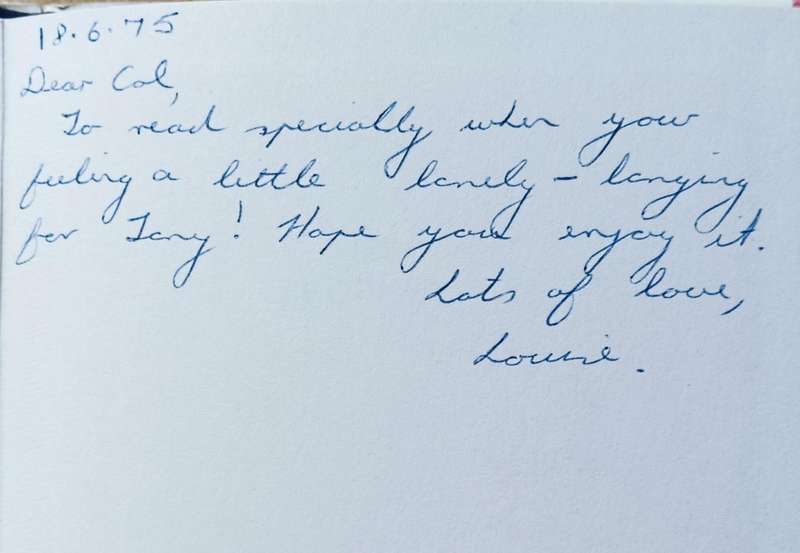 18.6.75
Dear Col,
To read specially when your
feeling a little lonely – longing
for Tony! Hope you enjoy it.
Lots of love,
Louise.